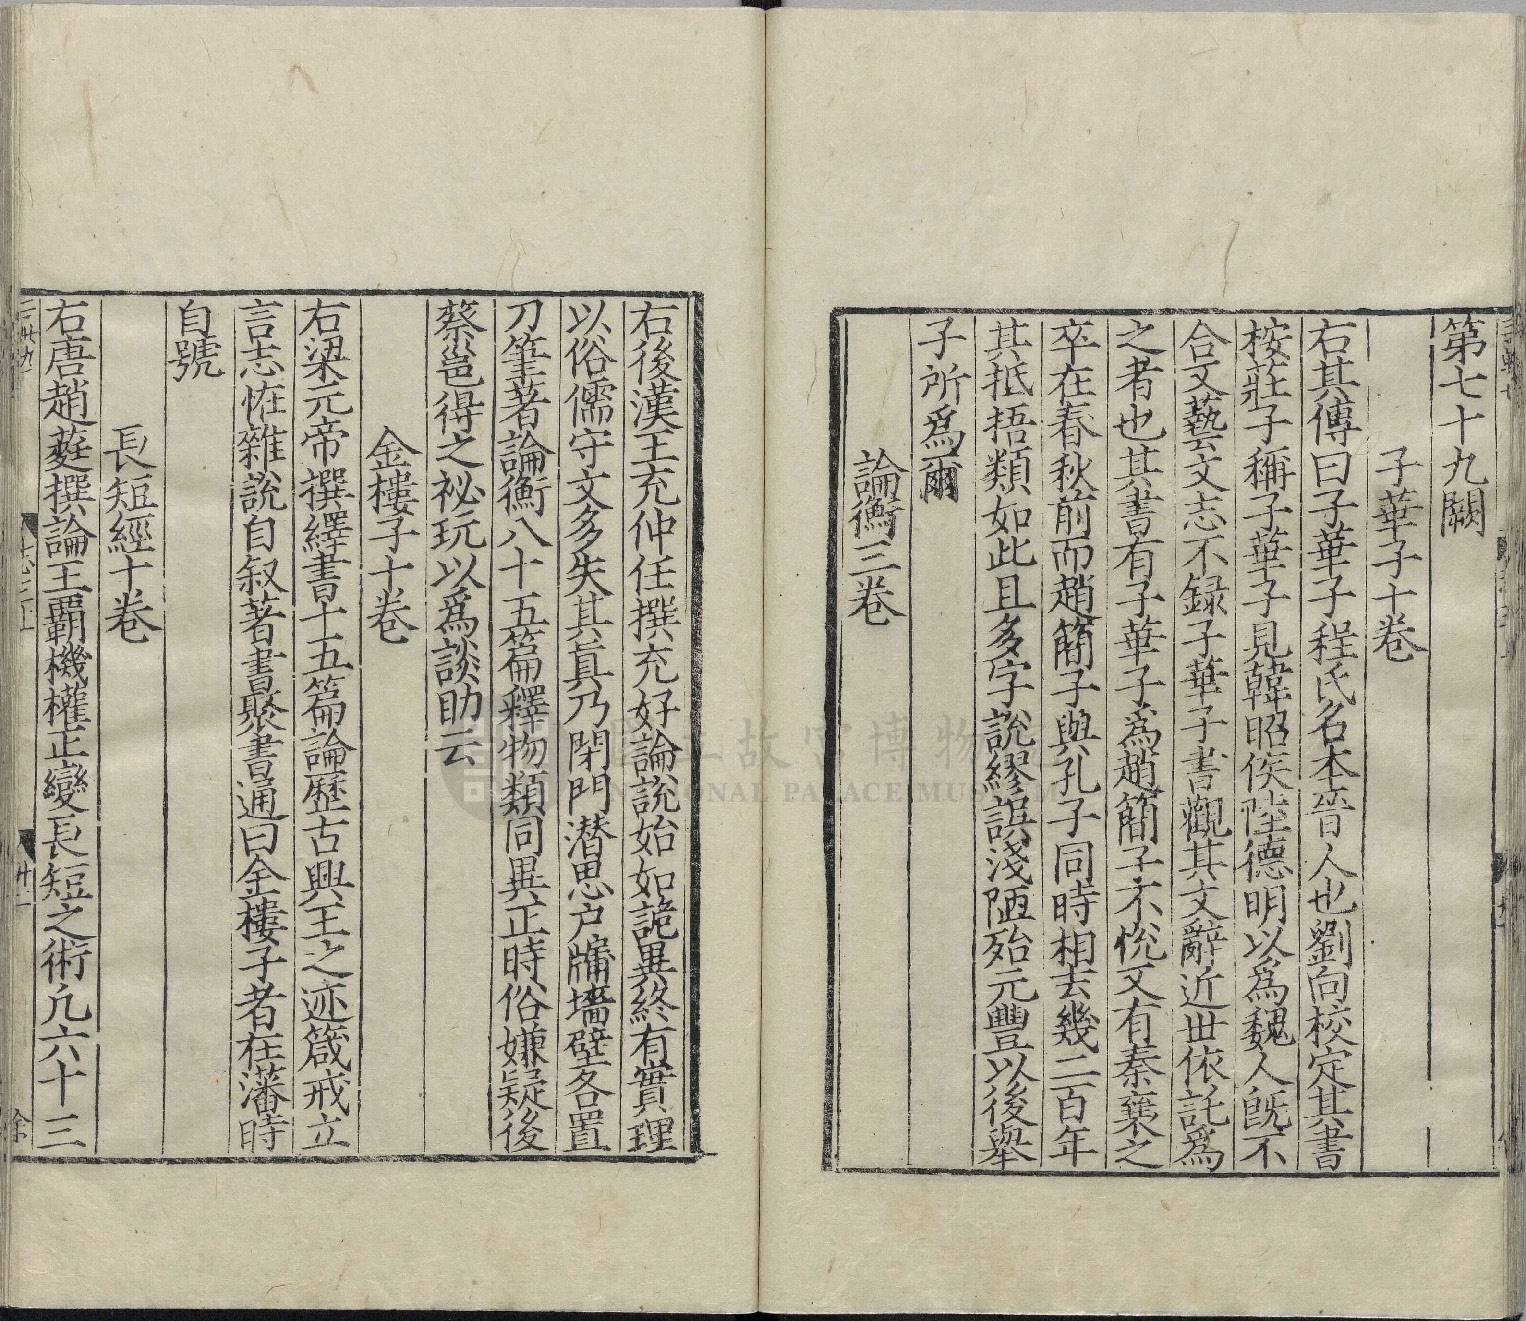 第七十九闕
子華子十卷
右其傳曰子華子程氏名本晉人也劉向校定其書
桉莊子稱子華子見韓昭侯陸德明以爲魏人旣不
合又藝文志不録子華子書觀其文辭近世依託爲
之者也其書有子華子爲趙簡子不悅又有秦襄之
卒在春秋前而趙簡子與孔子同時相去幾二百年
其抵捂類如此且多字說繆誤淺陋殆元豐以後舉
子所爲爾
論衡三卷
右後漢王充仲任撰充好論說始如詭異終有實理
以俗儒守文多失其眞乃閉門潜思户牖墻壁各置
刀筆著論衡八十五篇釋物類同異正時俗嫌疑後
蔡邕得之祕玩以爲談助云
金樓子十卷
右梁元帝撰繹書十五篇論歷古興王之迹箴戒立
言志怪雜說自叙著書聚書通曰金樓子者在藩時
自號
長短經十卷
右唐趙蕤撰論王霸機權正變長短之術凢六十三
國立故宮博物院
NATIONAL PALACE MUSEUM